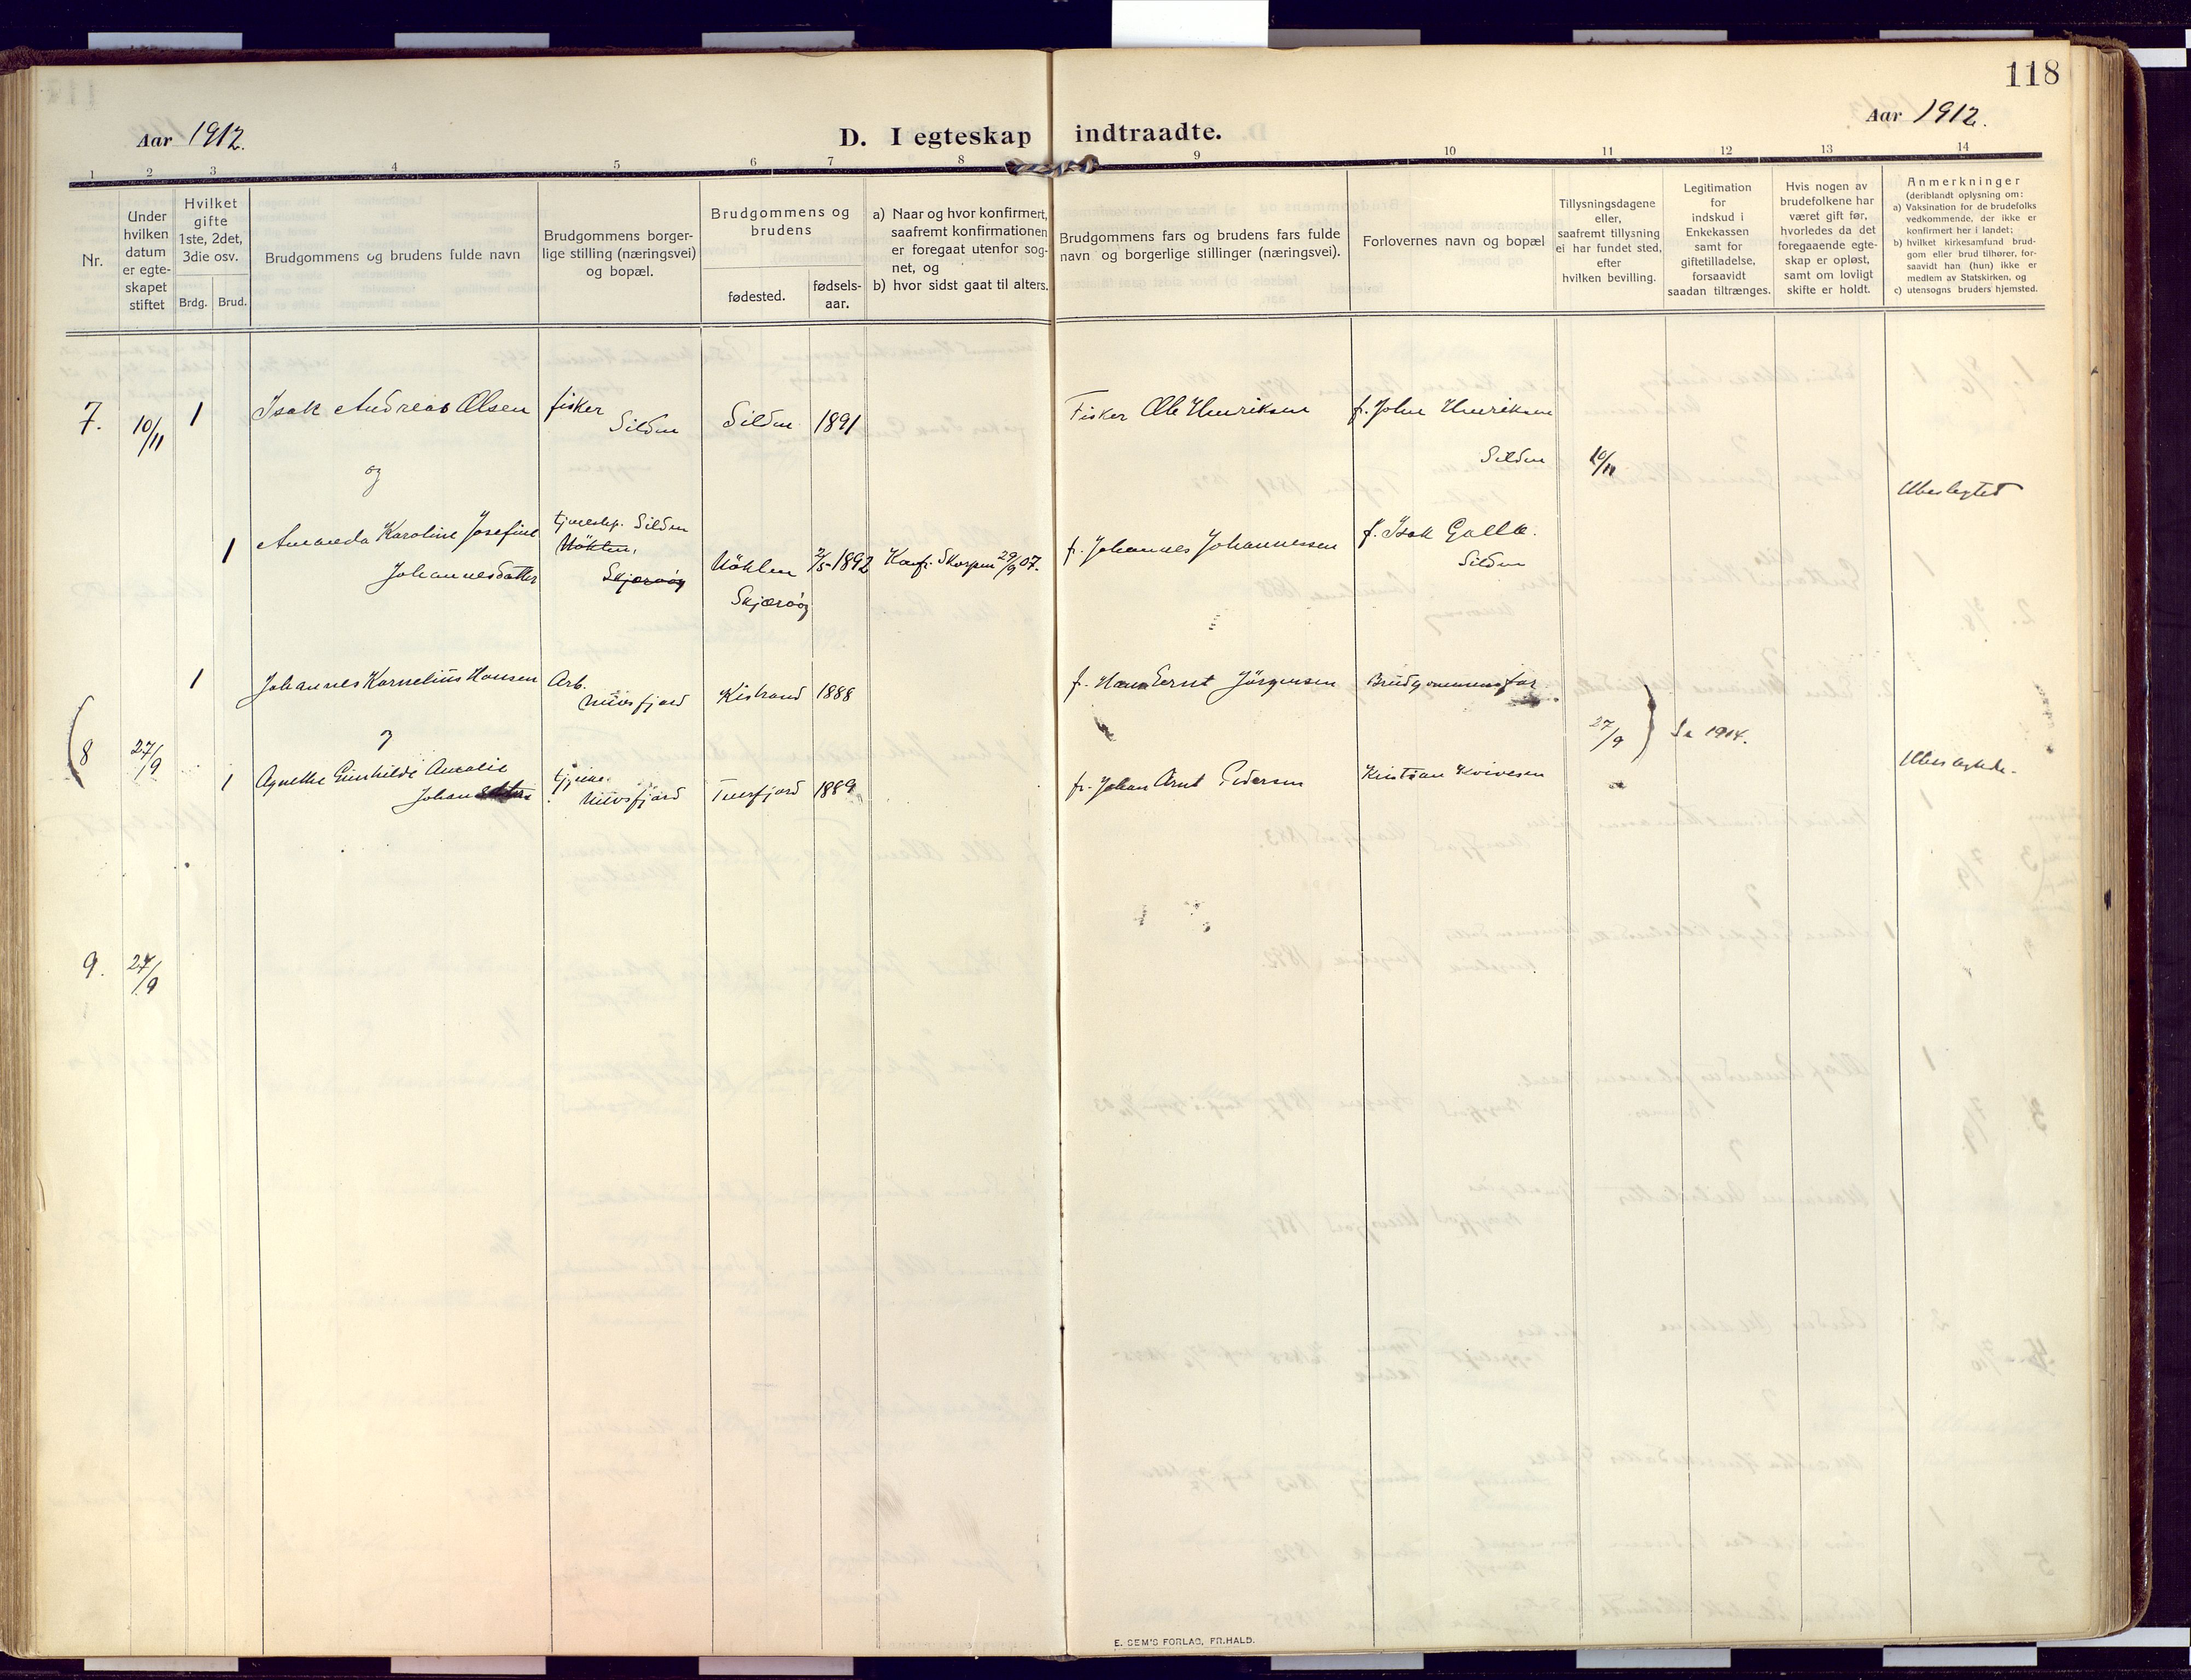 118
Aar 1912.
D. I egteskap indtraadte.
Aar 1912.
1 2 3 4 5 6 7 8 9 10 11 12 13 14
Nr.
Under hvilken datum er egteskapet stiftet
Hvilket gifte 1ste, 2det, 3die osv.
Brdg. Brud.
Brudgommens og brudens fulde navn
Brudgommens borgerlige stilling (næringsvei) og bopæl.
Brudgommens og brudens
fødested. fødselsaar.
a) Naar og hvor konfirmert, saafremt konfirmationen er foregaat utenfor sognet, og
b) hvor sidst gaat til alters.
Brudgommens fars og brudens fars fulde navn og borgerlige stillinger (næringsvei).
Forlovernes navn og bopæl
Tillysningsdagene eller, saafremt tillysning ei har fundet sted, efter hvilken bevilling.
Legitimation for indskud i Enkekassen samt for giftetilladelse, forsaavidt saadan tiltrænges.
Hvis nogen av brudefolkene har været gift før, hvorledes da det foregaaende egteskap er opløst, samt om lovligt skifte er holdt.
Anmerkninger
(deriblandt oplysning om:
a) Vaksination for de brudefolks vedkommende, der ikke er konfirmert her i landet;
b) hvilket kirkesamfund brudgom eller brud tilhører, forsaavidt han (hun) ikke er medlem av Statskirken, og
c) utensogns bruders hjemsted.
7. 10/11 1 Isak Andreas Olsen fisker Silden Silden 1891 Fisker Ole Henriksen f. John Henriksen
Silden 10/11
og
Ubeslegtet
1 Amanda Karoline Josefine Johannesdatter Silden Nöklen, Skjervöy Nöklen Skjærvöy 2/5 1892 Konf. Skorpen 29/9 07. f. Johannes Johannessen f. Isak Galle. Silden
1 Johannes Kornelius Hansen Arb. Nuvsfjord Kistrand 1888 f. Hans Ernt Jörgensen Brudgommens far
8 27/9 27/9 Se 1914.
1 Agnethe Gunhilde Amalie tjene. Nuvsfjord Tuerfjord 1889 fr. Johan Arnt Pedersen Kristian Kvivesen Ubeslegtede.
9. 27/9
E. SEM'S FORLAG, FR.HALD.